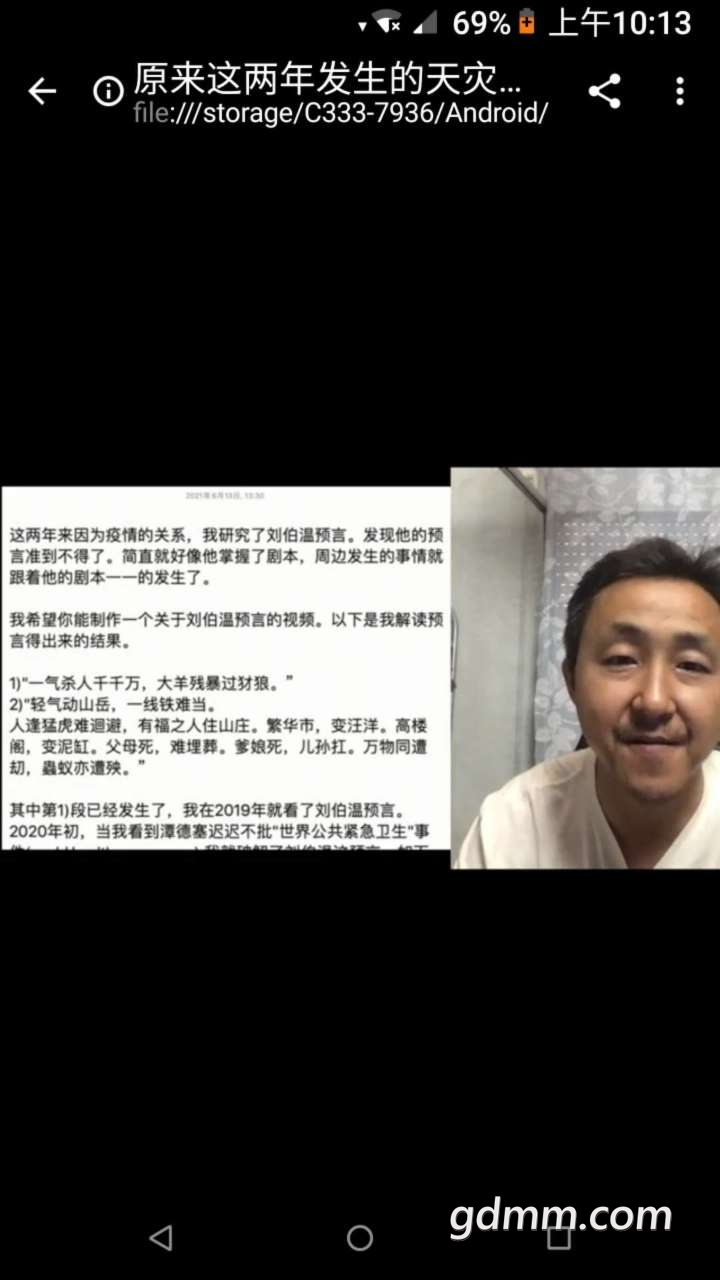 69% 上午10:13
原来这两年发生的天灾...
file:///storage/C333-7936/Android/
2021年6月13日, 13:30
这两年来因为疫情的关系，我研究了刘伯温预言。发现他的预
言准到不得了。简直就好像他掌握了剧本，周边发生的事情就
跟着他的剧本一一的发生了。
我希望你能制作一个关于刘伯温预言的视频。以下是我解读预
言得出来的结果。
1)“一气杀人千千万，大羊残暴过犲狼。”
2)“轻气动山岳，一线铁难当。
人逢猛虎难迴避，有福之人住山庄。繁华市，变汪洋。高楼
阁，变泥缸。父母死，难埋葬。爹娘死，儿孙扛。万物同遭
劫，蟲蚁亦遭殃。”
其中第1)段已经发生了，我在2019年就看了刘伯温预言。
2020年初，当我看到潭德塞迟迟不批“世界公共紧急卫生”事
gdmm.com